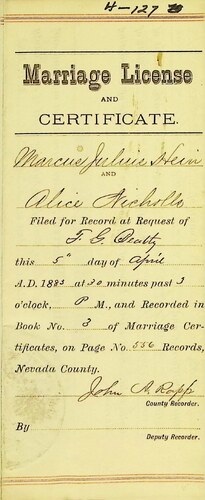 4-127
Marriage License
AND
CERTIFICATE.
Marcus Julius Hein
AND
Alice Nicholls
Filed for Record at Request of
F. G. Beatty
this 5" day of April
A.D. 1883 at 30 minutes past 3
o'clock, P M., and Recorded in
Book No. 3 of Marriage Cer-
tificates, on Page No. 556 Records,
Nevada County.
John A. Rapp
County Recorder.
By
Deputy Recorder.